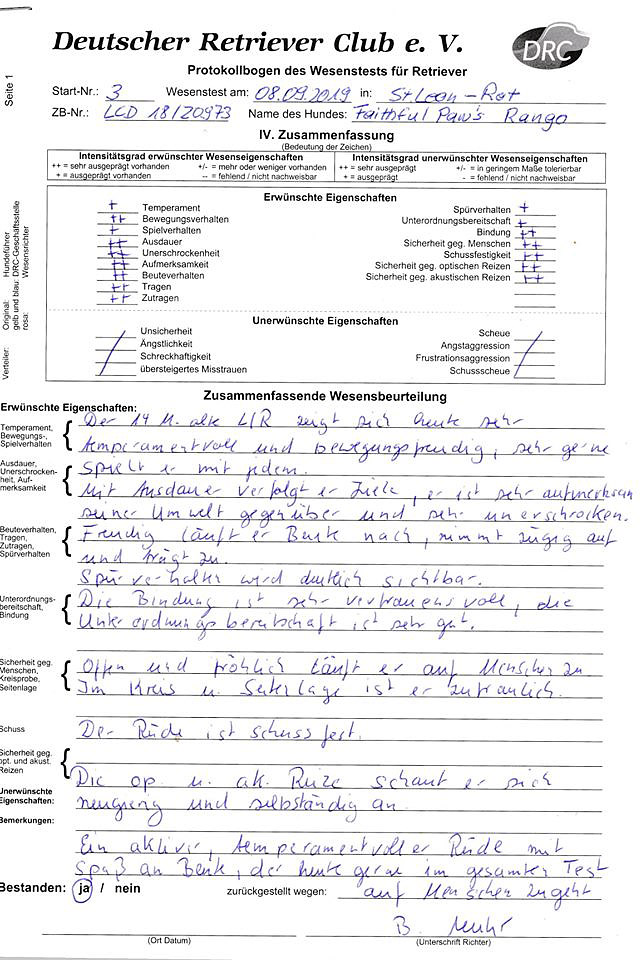 Deutscher Retriever Club e. V.
DRC
Protokollbogen des Wesenstests für Retriever
Seite 1
Start-Nr.: 3 Wesenstest am: 08.09.2019 in: St Leon-Rot
ZB-Nr.: LCD 18/Z0973 Name des Hundes: Faithful Paw's Rango
IV. Zusammenfassung
(Bedeutung der Zeichen)
Intensitätsgrad erwünschter Wesenseigenschaften Intensitätsgrad unerwünschter Wesenseigenschaften
++ = sehr ausgeprägt vorhanden +/- = mehr oder weniger vorhanden ++ = sehr ausgeprägt +/- = in geringem Maße tolerierbar
+ = ausgeprägt vorhanden -- = fehlend / nicht nachweisbar + = ausgeprägt - = fehlend / nicht nachweisbar
Erwünschte Eigenschaften
+ Temperament Spürverhalten +
++ Bewegungsverhalten Unterordnungsbereitschaft +
+ Spielverhalten Bindung ++
++ Ausdauer Sicherheit geg. Menschen ++
++ Unerschrockenheit Schussfestigkeit ++
++ Aufmerksamkeit Sicherheit geg. optischen Reizen ++
++ Beuteverhalten Sicherheit geg. akustischen Reizen ++
++ Tragen
++ Zutragen
Unerwünschte Eigenschaften
Unsicherheit Scheue
Ängstlichkeit Angstaggression
Schreckhaftigkeit Frustrationsaggression
übersteigertes Misstrauen Schussscheue
Verteiler: Original: Hundeführer
gelb und blau: DRC-Geschäftsstelle
rosa: Wesensrichter
Zusammenfassende Wesensbeurteilung
Erwünschte Eigenschaften:
Temperament, Bewegungs-, Spielverhalten
Der 14 M. alte L/R zeigt sich heute sehr
temperamentvoll und bewegungsfreudig, sehr gerne
spielt er mit jedem.
Ausdauer, Unerschrocken-heit, Auf-merksamkeit
Mit Ausdauer verfolgt er Ziele, er ist sehr aufmerksam
seiner Umwelt gegenüber und sehr unerschrocken.
Beuteverhalten, Tragen, Zutragen, Spürverhalten
Freudig läuft er Beute nach, nimmt zügig auf
und trägt zu.
Spürverhalten wird deutlich sichtbar.
Unterordnungs-bereitschaft, Bindung
Die Bindung ist sehr vertrauensvoll, die
Unterordnungsbereitschaft ist sehr gut.
Sicherheit geg. Menschen, Kreisprobe, Seitenlage
Offen und fröhlich läuft er auf Menschen zu
Im Kreis u. Seitenlage ist er zutraulich.
Schuss
Der Rüde ist schussfest.
Sicherheit geg. opt. und akust. Reizen
Die op. u. ak. Reize schaut er sich
neugierig und selbständig an.
Unerwünschte Eigenschaften:
Bemerkungen:
Ein aktiver, temperamentvoller Rüde mit
Spaß an Beute, der heute gerne im gesamten Test
auf Menschen zugeht
Bestanden: ja / nein zurückgestellt wegen:
B.
(Ort Datum) (Unterschrift Richter)